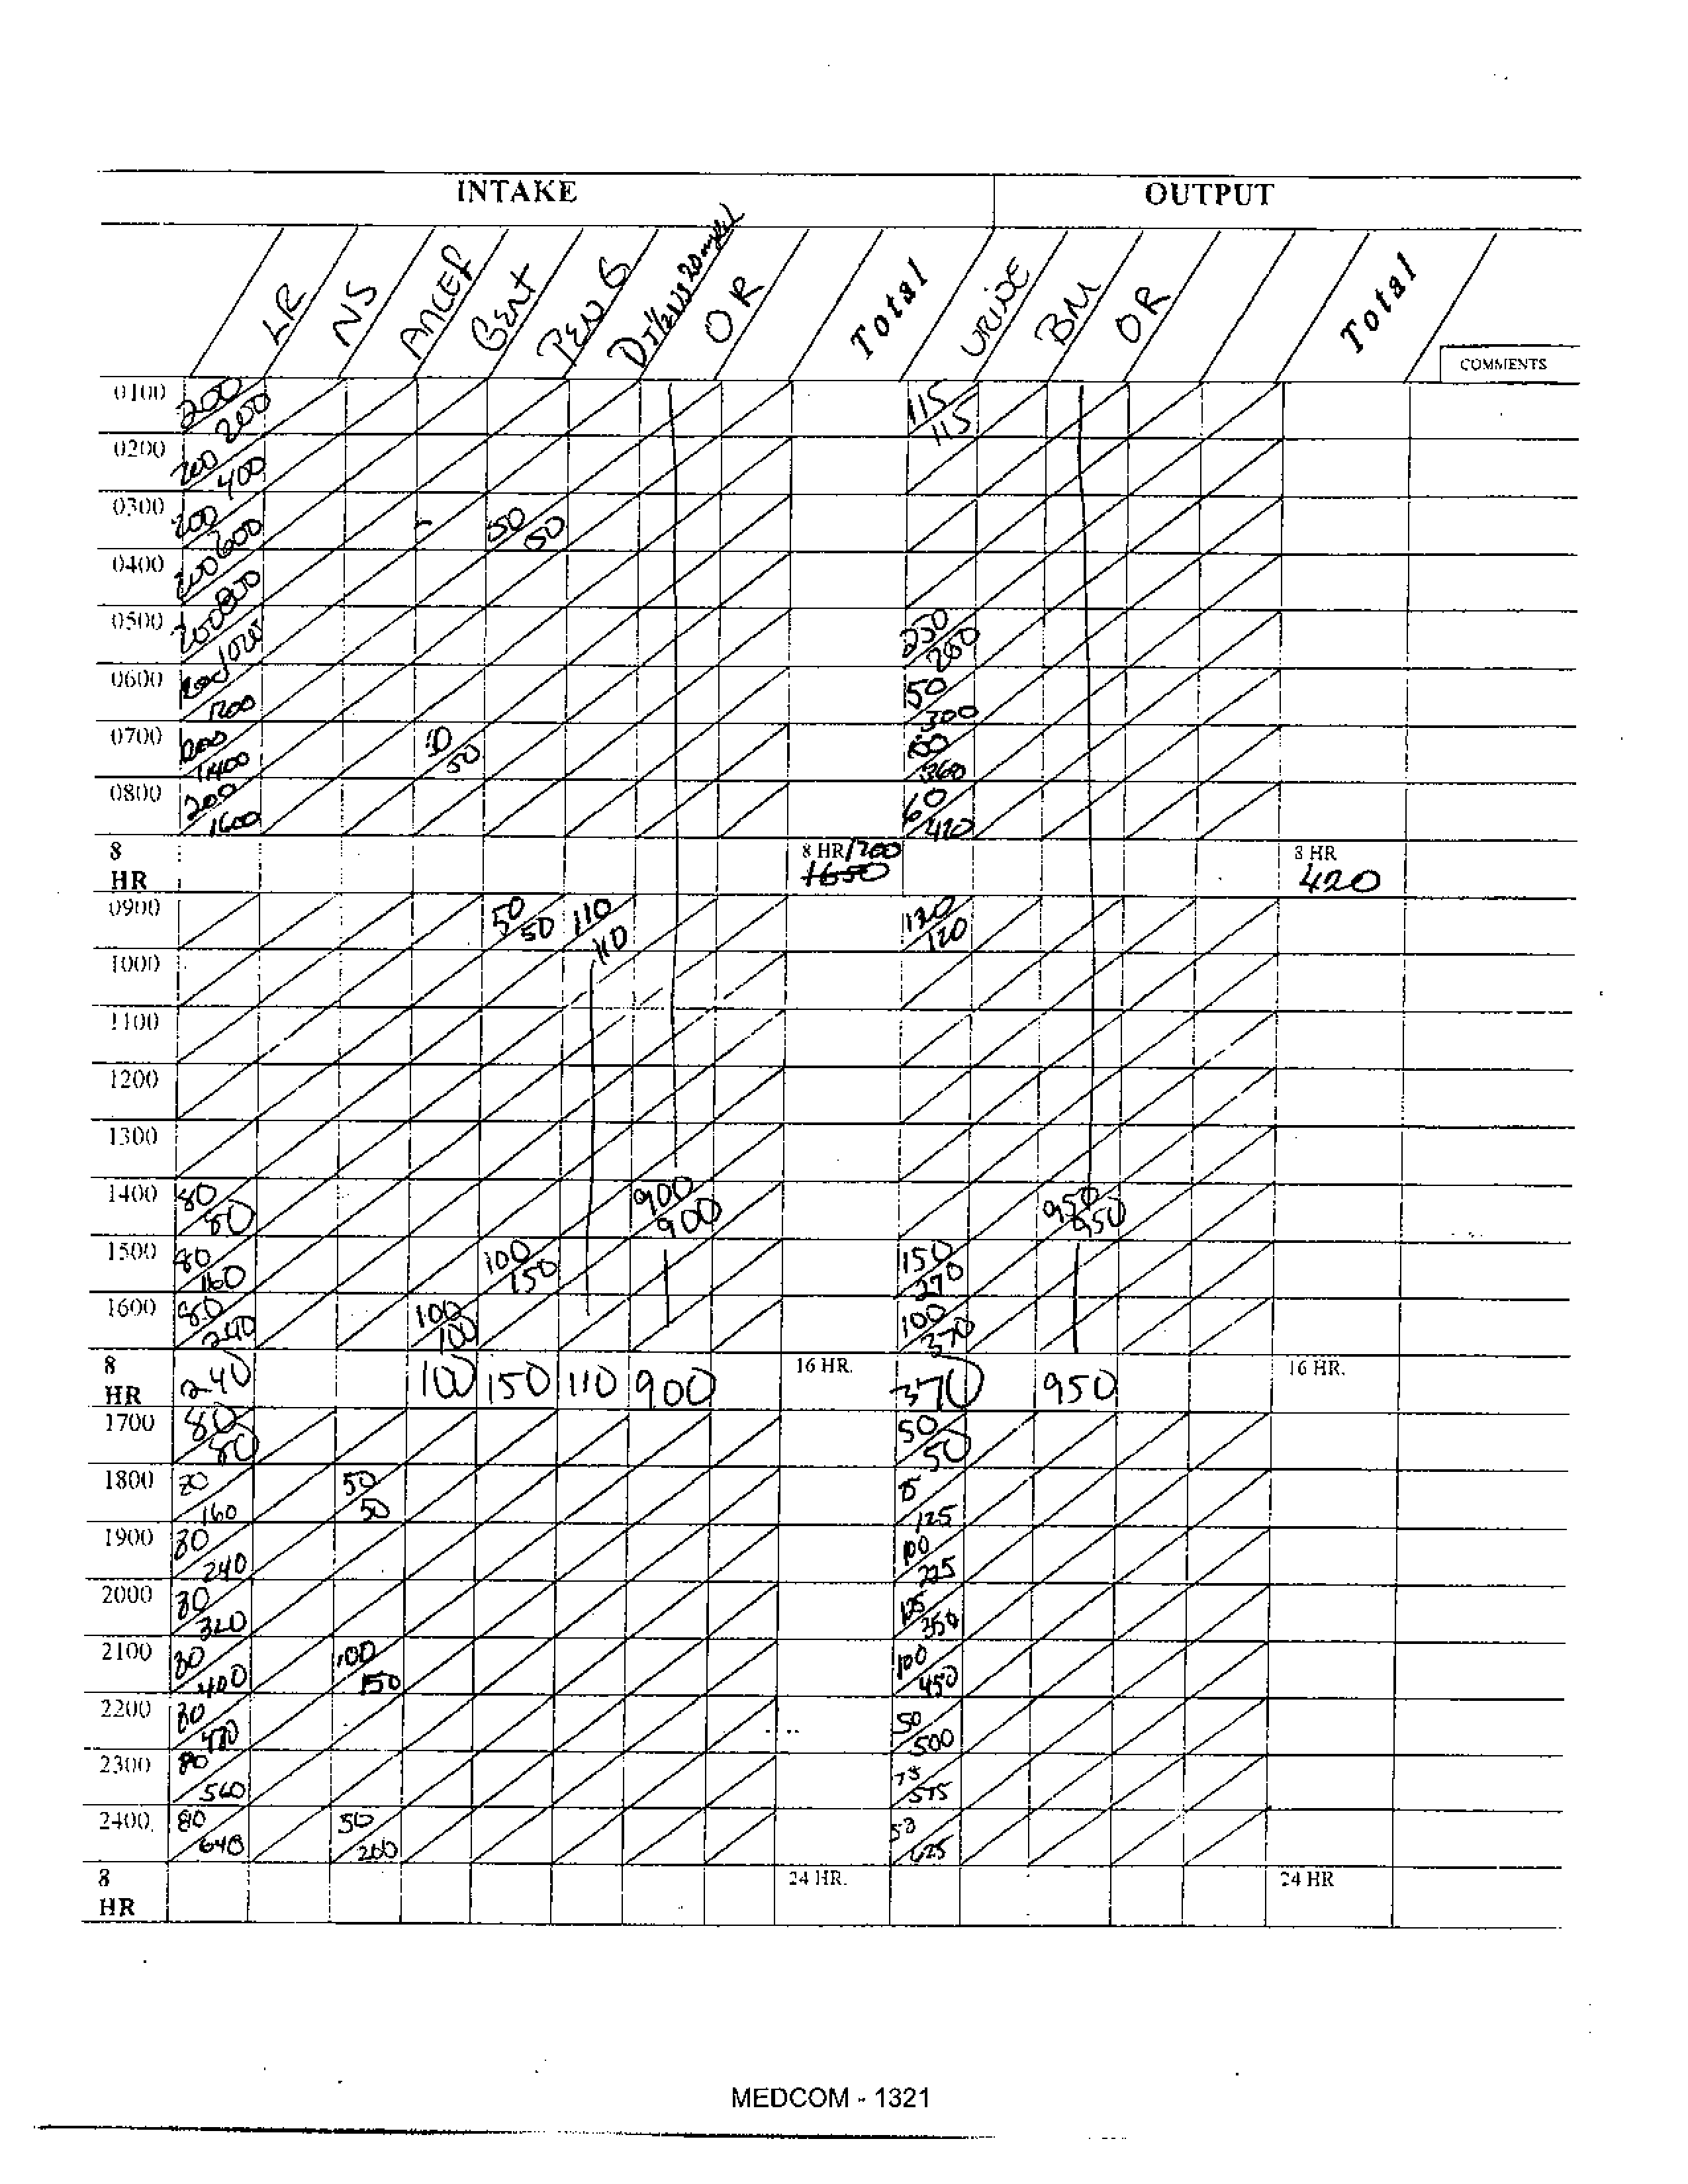 INTAKE OUTPUT
LR NS ANCEF Gent PEN G OR Total URINE BM OR Total COMMENTS
0100 200 200 115 115
0200 200 400
0300 200 600 50 50
0400 200 800
0500 200 1000 250
0600 200 1200 50 300
0700 200 1400 50 360
0800 200 1600 60 420
8 HR 8 HR 1700 1650 8 HR 420
0900 50 50 110 110 120 120
1000
1100
1200
1300
1400 80 80 900 900 950 950
1500 80 160 100 150 150 270
1600 80 240 100 100 100 370
8 HR 240 100 150 110 900 16 HR. 370 950 16 HR.
1700 80 80 50 50
1800 160 50 50 125
1900 80 240 100 225
2000 80 320 125 350
2100 80 400 100 150 100 450
2200 80 480 50 500
2300 80 560 75 575
2400 80 640 50 200 50 625
8 HR 24 HR. 24 HR
MEDCOM - 1321